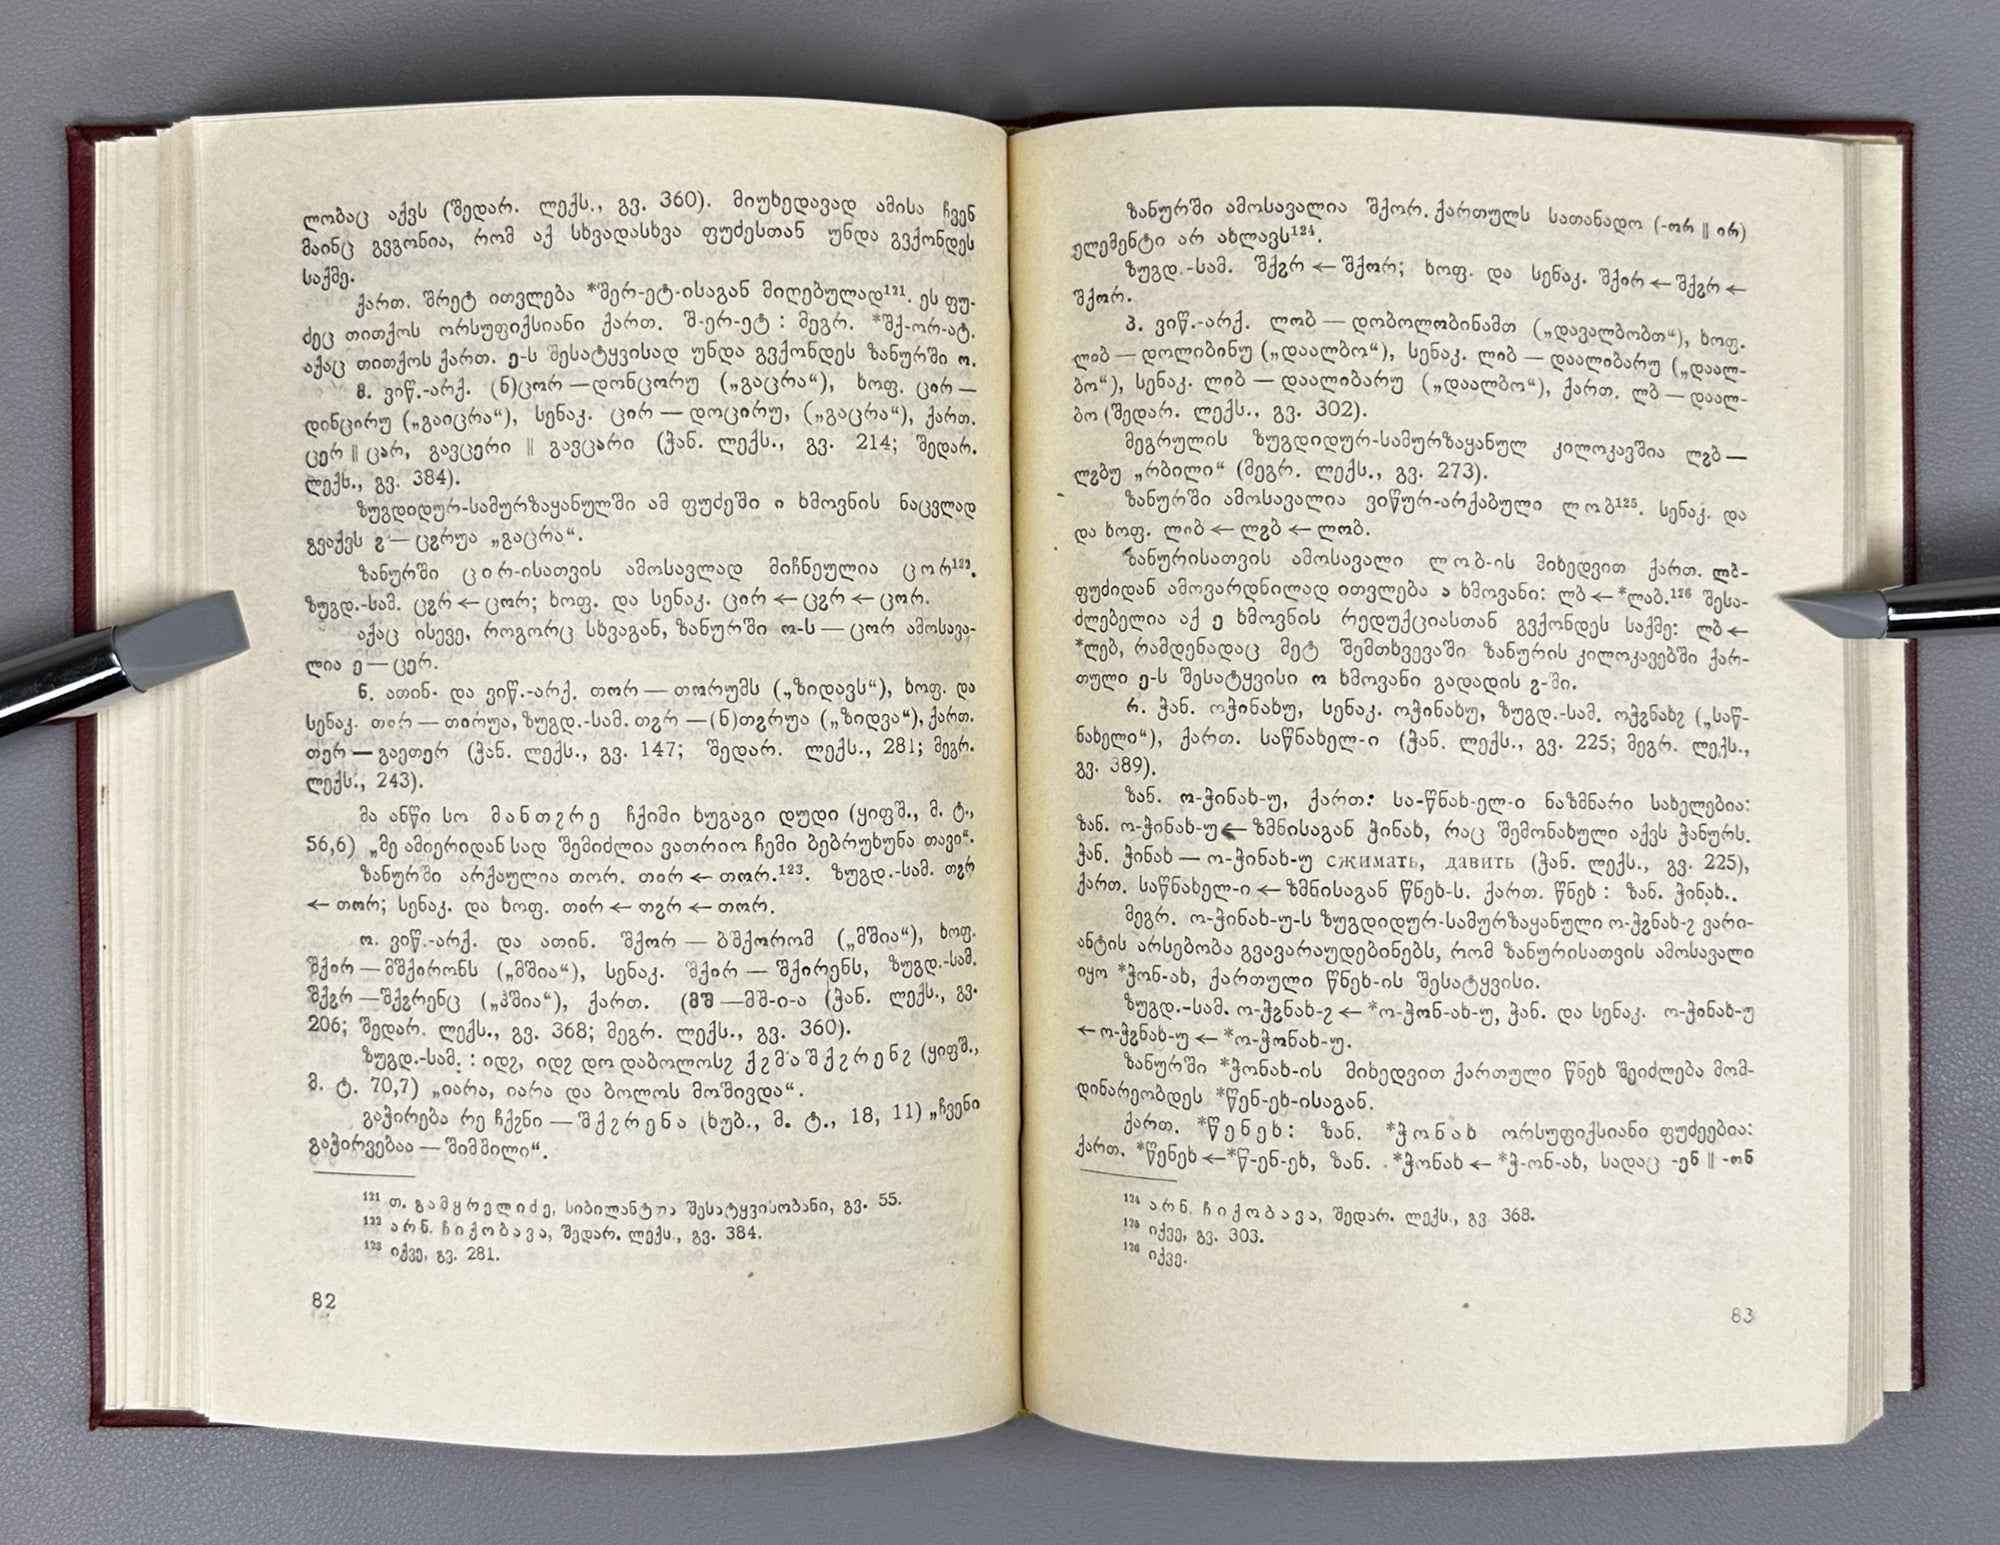 ლობაც აქვს (შედარ. ლექს., გვ. 360). მიუხედავად ამისა ჩვენ
მაინც გვგონია, რომ აქ სხვადასხვა ფუძესთან უნდა გვქონდეს
საქმე.
ქართ. შრეტ ითვლება *შერ-ეტ-ისაგან მიღებულად¹²¹. ეს ფუ-
ძეც თითქოს ორსუფიქსიანი ქართ. შ-ერ-ეტ : მეგრ. *შქ-ორ-ატ.
აქაც თითქოს ქართ. ე-ს შესატყვისად უნდა გვქონდეს ზანურში ო.
მ. ვიწ.-არქ. (ნ)ცორ — დონცორუ („გაცრა“), ხოფ. ცირ —
დინცირუ („გაიცრა“), სენაკ. ცირ — დოცირუ, („გაცრა“), ქართ.
ცერ || ცარ, გავცერი || გავცარი (ჭან. ლექს., გვ. 214; შედარ.
ლექს., გვ. 384).
ზუგდიდურ-სამურზაყანულში ამ ფუძეში ი ხმოვნის ნაცვლად
გვაქვს ჷ — ცჷრუა „გაცრა“.
ზანურში ცირ-ისათვის ამოსავლად მიჩნეულია ცორ¹²².
ზუგდ.-სამ. ცჷრ ← ცორ; ხოფ. და სენაკ. ცირ ← ცჷრ ← ცორ.
აქაც ისევე, როგორც სხვაგან, ზანურში ო-ს — ცორ ამოსავა-
ლია ე — ცერ.
ნ. ათინ- და ვიწ.-არქ. თორ — თორუმს („ზიდავს“), ხოფ. და
სენაკ. თირ — თირუა, ზუგდ.-სამ. თჷრ — (ნ)თჷრუა („ზიდვა“), ქართ.
თერ — გაეთერ (ჭან. ლექს., გვ. 147; შედარ. ლექს., 281; მეგრ.
ლექს., 243).
მა ანწი სო მანთჷრე ჩქიმი ხუგაგი დუდი (ყიფშ., მ. ტ.,
56,6) „მე ამიერიდან სად შემიძლია ვათრიო ჩემი ბებრუხუნა თავი“.
ზანურში არქაულია თორ. თირ ← თორ.¹²³. ზუგდ.-სამ. თჷრ
← თორ; სენაკ. და ხოფ. თირ ← თჷრ ← თორ.
ო. ვიწ.-არქ. და ათინ. შქორ — ბშქორომ („მშია“), ხოფ.
შქირ — მშქირონს („მშია“), სენაკ. შქირ — შქირენს, ზუგდ.-სამ.
შქჷრ — შქჷრენც („ჰშია“), ქართ. (მშ — მშ-ი-ა (ჭან. ლექს., გვ.
206; შედარ. ლექს., გვ. 368; მეგრ. ლექს., გვ. 360).
ზუგდ.-სამ. : იდჷ, იდჷ დო დაბოლოსჷ ქჷმაშქჷრენჷ (ყიფშ.,
მ. ტ. 70,7) „იარა, იარა და ბოლოს მოშივდა“.
გაჭირება რე ჩქჷნი — შქჷრენა (ხუბ., მ. ტ., 18, 11) „ჩვენი
გაჭირვებაა — შიმშილი“.
¹²¹ თ. გამყრელიძე, სიბილანტთა შესატყვისობანი, გვ. 55.
¹²² არნ. ჩიქობავა, შედარ. ლექს., გვ. 384.
¹²³ იქვე, გვ. 281.
82
ზანურში ამოსავალია შქორ. ქართულს სათანადო (-ორ || ირ)
ელემენტი არ ახლავს¹²⁴.
ზუგდ.-სამ. შქჷრ ← შქორ; ხოფ. და სენაკ. შქირ ← შქჷრ ←
შქორ.
პ. ვიწ.-არქ. ლობ — დობოლობინამთ („დავალბობთ“), ხოფ.
ლიბ — დოლიბინუ („დაალბო“), სენაკ. ლიბ — დაალიბარუ („დაალ-
ბო“), სენაკ. ლიბ — დაალიბარუ („დაალბო“), ქართ. ლბ — დაალ-
ბო (შედარ. ლექს., გვ. 302).
მეგრულის ზუგდიდურ-სამურზაყანულ კილოკავშია ლჷბ —
ლჷბუ „რბილი“ (მეგრ. ლექს., გვ. 273).
ზანურში ამოსავალია ვიწურ-არქაბული ლობ¹²⁵. სენაკ. და
და ხოფ. ლიბ ← ლჷბ ← ლობ.
ზანურისათვის ამოსავალი ლობ-ის მიხედვით ქართ. ლბ-
ფუძიდან ამოვარდნილად ითვლება ა ხმოვანი: ლბ ← *ლაბ.¹²⁶ შესა-
ძლებელია აქ ე ხმოვნის რედუქციასთან გვქონდეს საქმე: ლბ ←
*ლებ, რამდენადაც მეტ შემთხვევაში ზანურის კილოკავებში ქარ-
თული ე-ს შესატყვისი ო ხმოვანი გადადის ჷ-ში.
რ. ჭან. ოჭინახუ, სენაკ. ოჭინახუ, ზუგდ.-სამ. ოჭჷნახჷ („საწ-
ნახელი“), ქართ. საწნახელ-ი (ჭან. ლექს., გვ. 225; მეგრ. ლექს.,
გვ. 389).
ზან. ო-ჭინახ-უ, ქართ: სა-წნახ-ელ-ი ნაზმნარი სახელებია:
ზან. ო-ჭინახ-უ ← ზმნისაგან ჭინახ, რაც შემონახული აქვს ჭანურს.
ჭან. ჭინახ — ო-ჭინახ-უ сжимать, давить (ჭან. ლექს., გვ. 225),
ქართ. საწნახელ-ი ← ზმნისაგან წნეხ-ს. ქართ. წნეხ : ზან. ჭინახ..
მეგრ. ო-ჭინახ-უ-ს ზუგდიდურ-სამურზაყანული ო-ჭჷნახ-ჷ ვარი-
ანტის არსებობა გვავარაუდებინებს, რომ ზანურისათვის ამოსავალი
იყო *ჭონ-ახ, ქართული წნეხ-ის შესატყვისი.
ზუგდ.-სამ. ო-ჭჷნახ-ჷ ← *ო-ჭონ-ახ-უ, ჭან. და სენაკ. ო-ჭინახ-უ
← ო-ჭჷნახ-უ ← *ო-ჭონახ-უ.
ზანურში *ჭონახ-ის მიხედვით ქართული წნეხ შეიძლება მომ-
დინარეობდეს *წენ-ეხ-ისაგან.
ქართ. *წენეხ: ზან. *ჭონახ ორსუფიქსიანი ფუძეებია:
ქართ. *წენეხ ← *წ-ენ-ეხ, ზან. *ჭონახ ← *ჭ-ონ-ახ, სადაც -ენ || -ონ
¹²⁴ არნ. ჩიქობავა, შედარ. ლექს., გვ 368.
¹²⁵ იქვე, გვ. 303.
¹²⁶ იქვე.
83